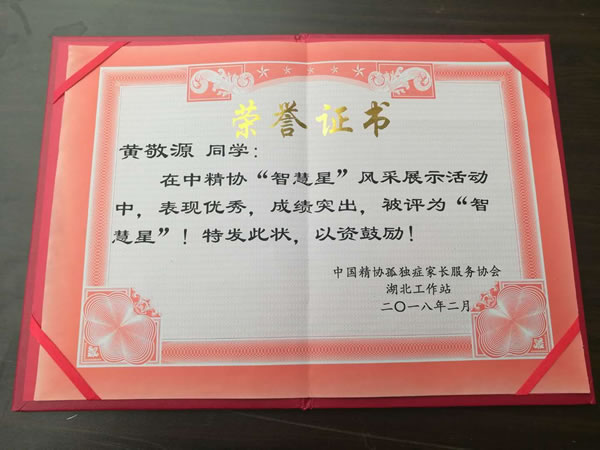 荣誉证书
黄敬源 同学：
在中精协“智慧星”风采展示活动
中，表现优秀，成绩突出，被评为“智
慧星”！特发此状，以资鼓励！
中国精协孤独症家长服务协会
湖北工作站
二〇一八年二月